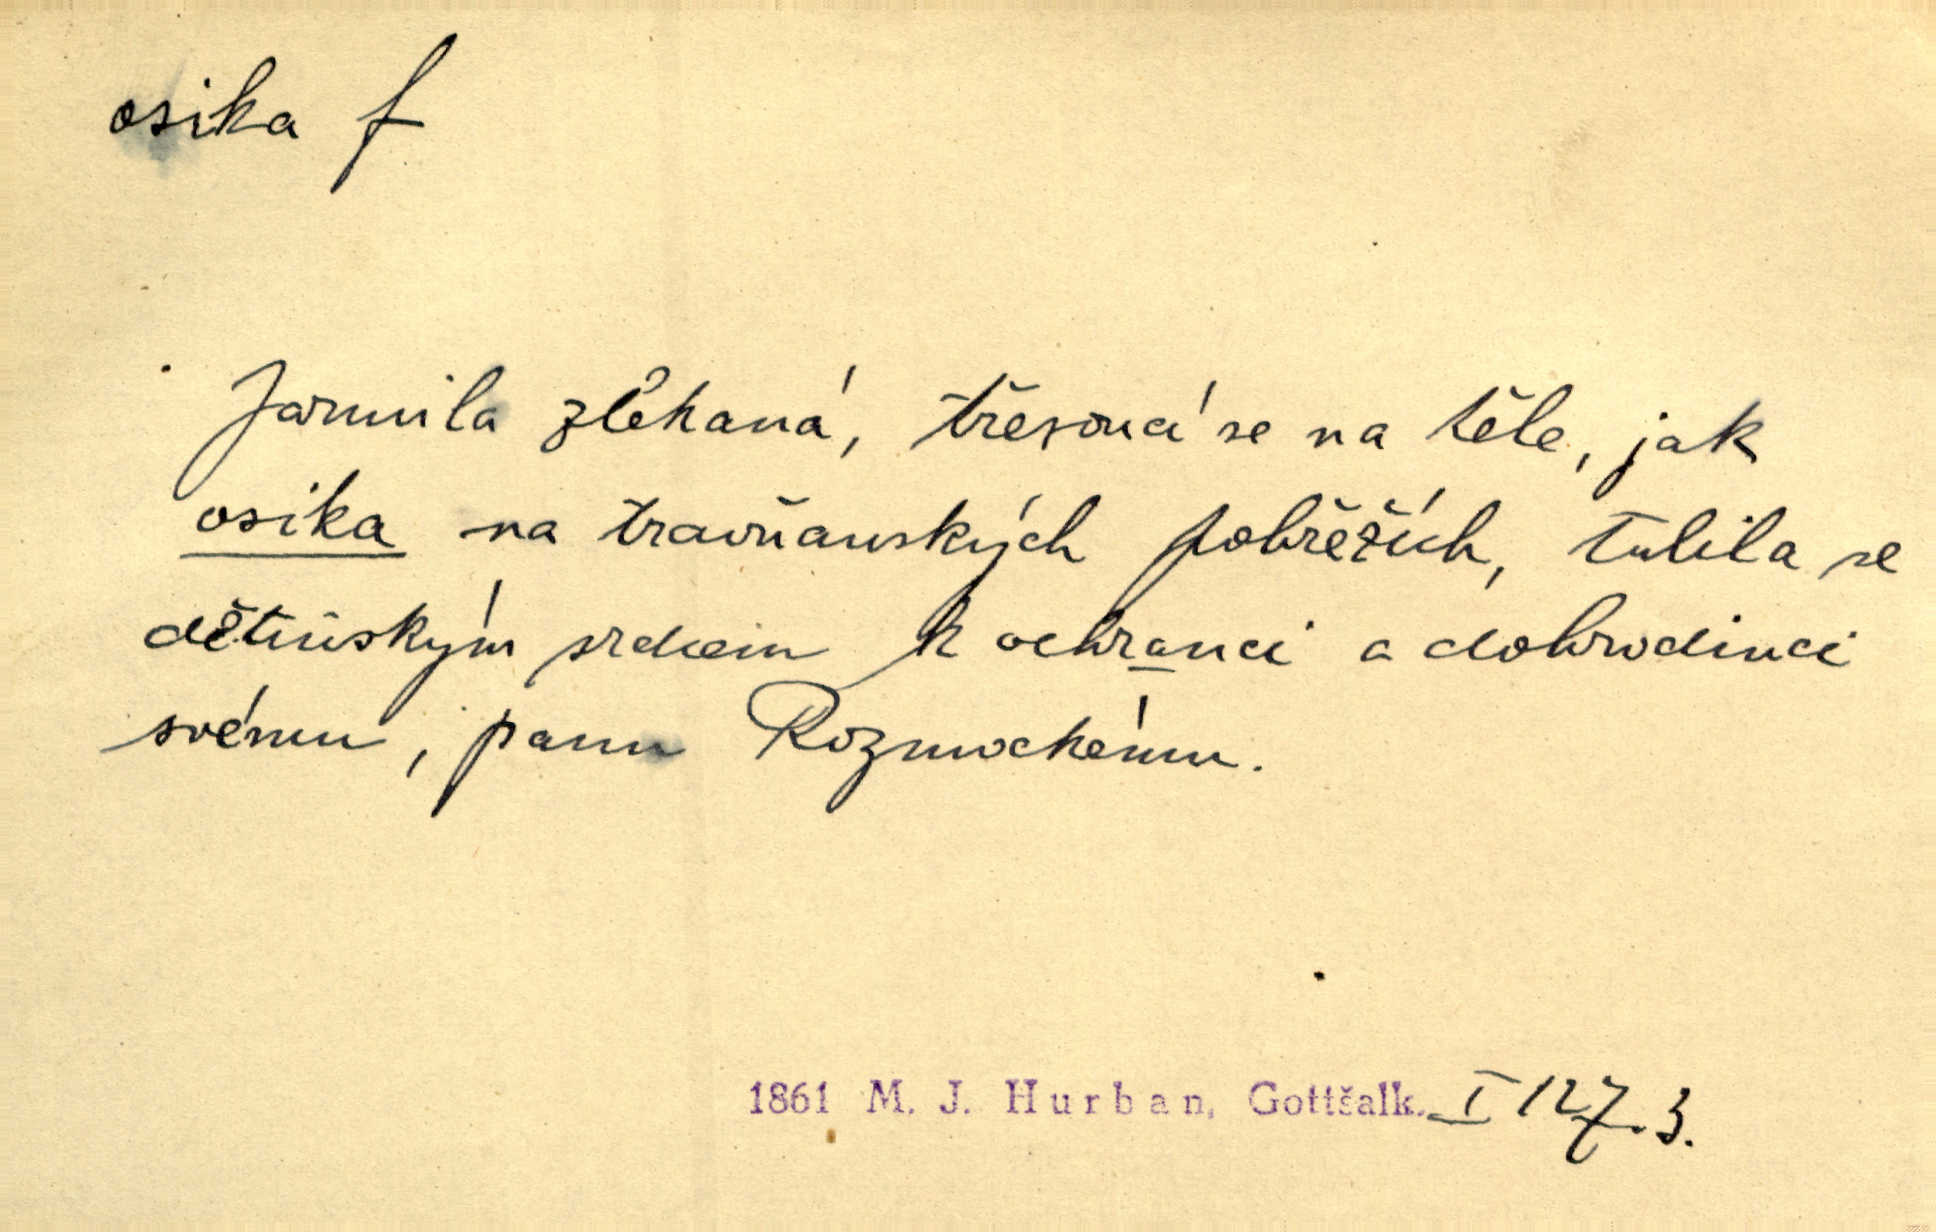 osika f
Jarmila zlěkaná, třesoucí se na těle, jak
osika na travňanských pobřežích, tulila se
dětinským srdcem k ochranci a dobrodinci
svému, panu Rozmockému.
1861 M. J. Hurban, Gottšalk. I 127. 3.